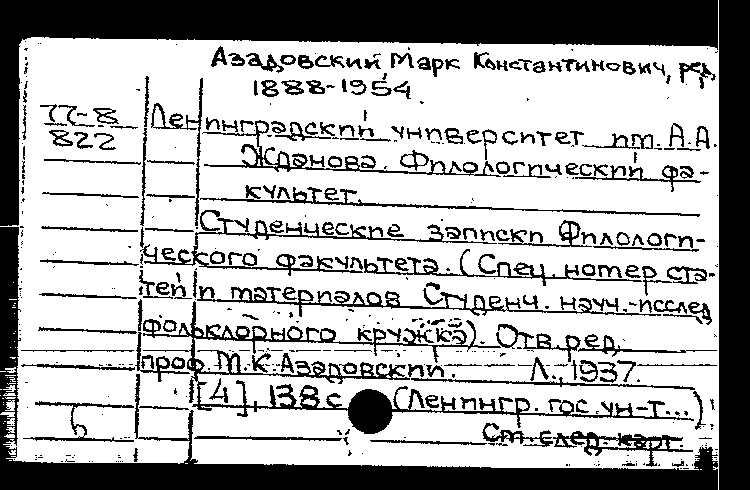 Азадовский Марк Константинович, ред.
1888-1954.
77-8
822
Ленинградский университет им. А.А.
Жданова. Филологический фа-
культет.
Студенческие записки Филологи-
ческого факультета. (Спец. номер ста-
тей и материалов Студенч. науч.-исслед.
фольклорного кружка). Отв. ред.
проф. М.К. Азадовский. Л., 1937.
[4], 138 с (Ленингр. гос. ун-т...)
б
См. след. карт.